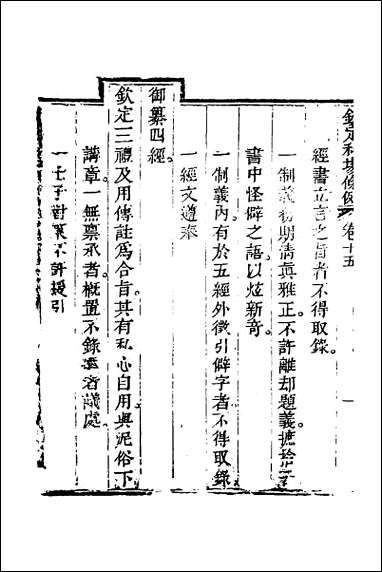 欽定科場條例 卷十五 一
經書立言之旨者不得取錄
一制義務明清真雅正不許離却題義摭拾子
書中怪僻之語以炫新奇
一制義內有於五經外徵引僻字者不得取錄
一經文遵奉
御纂四經
欽定三禮及用傳註為合旨其有私心自用與泥俗下
講章一無稟承者概置不錄違者議處
一士子對策不許援引